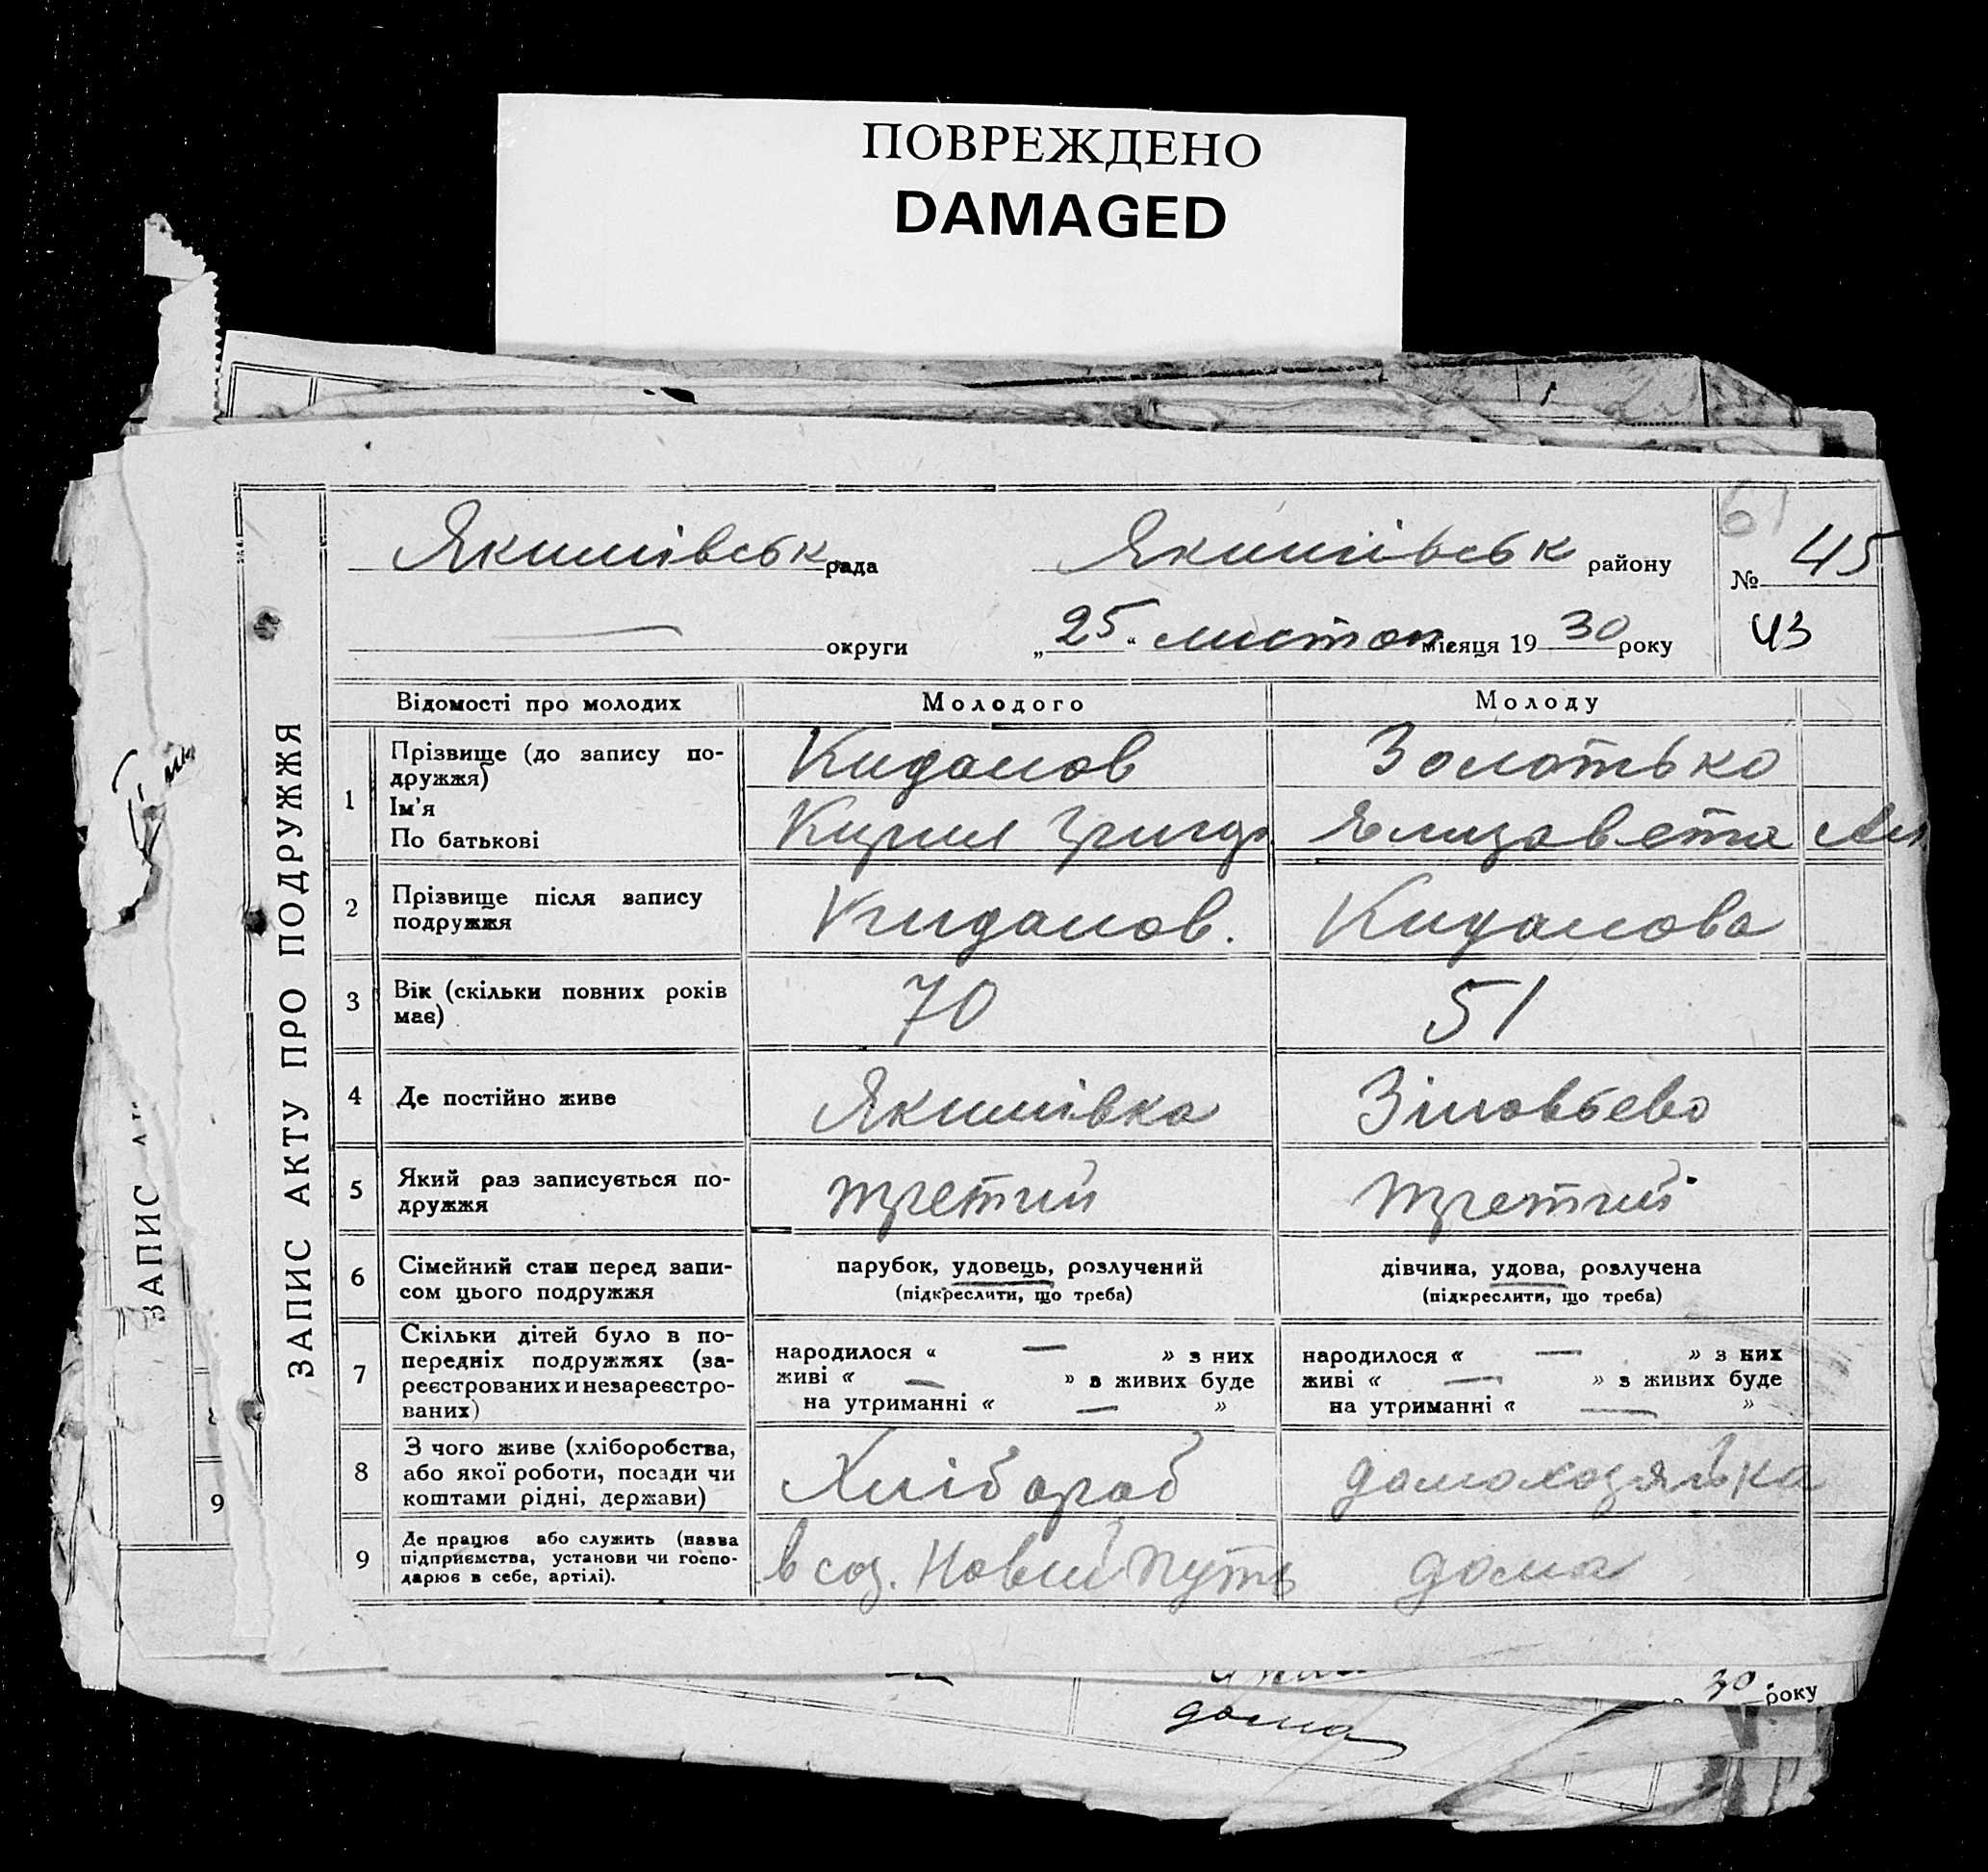 ПОВРЕЖДЕНО
DAMAGED
ЗАПИС АКТУ ПРО ПОДРУЖЖЯ
Якимівськ рада Якимівськ району
№ 45
округи „25“ листоп місяця 1930 року
43
Відомості про молодих Молодого Молоду
1 Прізвище (до запису по-
дружжя) Кидалов Золотько
Ім'я
По батькові Кирил Григор. Єлизавета
2 Прізвище після запису
подружжя Кидалов. Кидалова
3 Вік (скільки повних років
має) 70 51
4 Де постійно живе Якимівка Зіновьево
5 Який раз записується по-
дружжя третий третий
6 Сімейний стан перед запи-
сом цього подружжя
парубок, удовець, розлучений дівчина, удова, розлучена
(підкреслити, що треба) (підкреслити, що треба)
7 Скільки дітей було в по-
передніх подружжях (за-
реєстрованих и незареєстро-
ваних)
народилося « — » з них народилося « — » з них
живі « — » з живих буде живі « — » з живих буде
на утриманні « — » на утриманні « — »
8 З чого живе (хліборобства,
або якої роботи, посади чи
коштами рідні, держави) Хлібороб домохозяйка
9 Де працює або служить (назва
підприємства, установи чи госпо-
дарює в себе, артілі). в соз. Новий Путь дома
ЗАПИС
9
30 року
дома